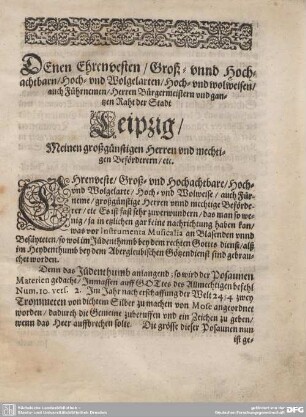 DEnen Ehrenvesten / Groß- vnnd Hoch-
achtbarn / Hoch- vnd Wolgelarten / Hoch- vnd wolweisen /
auch Führnemen / Herren Bürgermeistern vnd gan-
tzen Raht der Stadt
Leipzig /
Meinen großgünstigen Herren vnd mechti-
gen Beförderern / etc.
EHrenveste / Groß- vnd Hochachtbare / Hoch-
vnd Wolgelarte / Hoch- vnd Wolweise / auch Für-
neme / großgünstige Herren vnnd mechtige Beförde-
rer / etc Es ist fast sehr zuverwundern / das man so we-
nig / ja in etzlichen gar keine nachrichtung haben kan /
was vor Instrumenta Musicalia an Blasenden vnnd
Besäyteten / so wol im Jüdenthumb bey dem rechten Gottes dienst / alß
im Heydenthumb bey dem Abergleubischen Götzendienst sind gebrau-
chet worden.
Denn das Jüdenthumb anlangend / so wird der Posaunen
Materien gedacht / Inmassen auff GOTtes des Allmechtigen befehl
Num. 10. vers. 2. Im Jahr nach erschaffung der Welt 2454 zwey
Trommeten von dichtem Silber zu machen von Mose angeordnet
worden / dadurch die Gemeine zuberuffen vnd ein Zeichen zu geben /
wenn das Heer auffbrechen solte. Die grösse dieser Posaunen nun
ist ge-